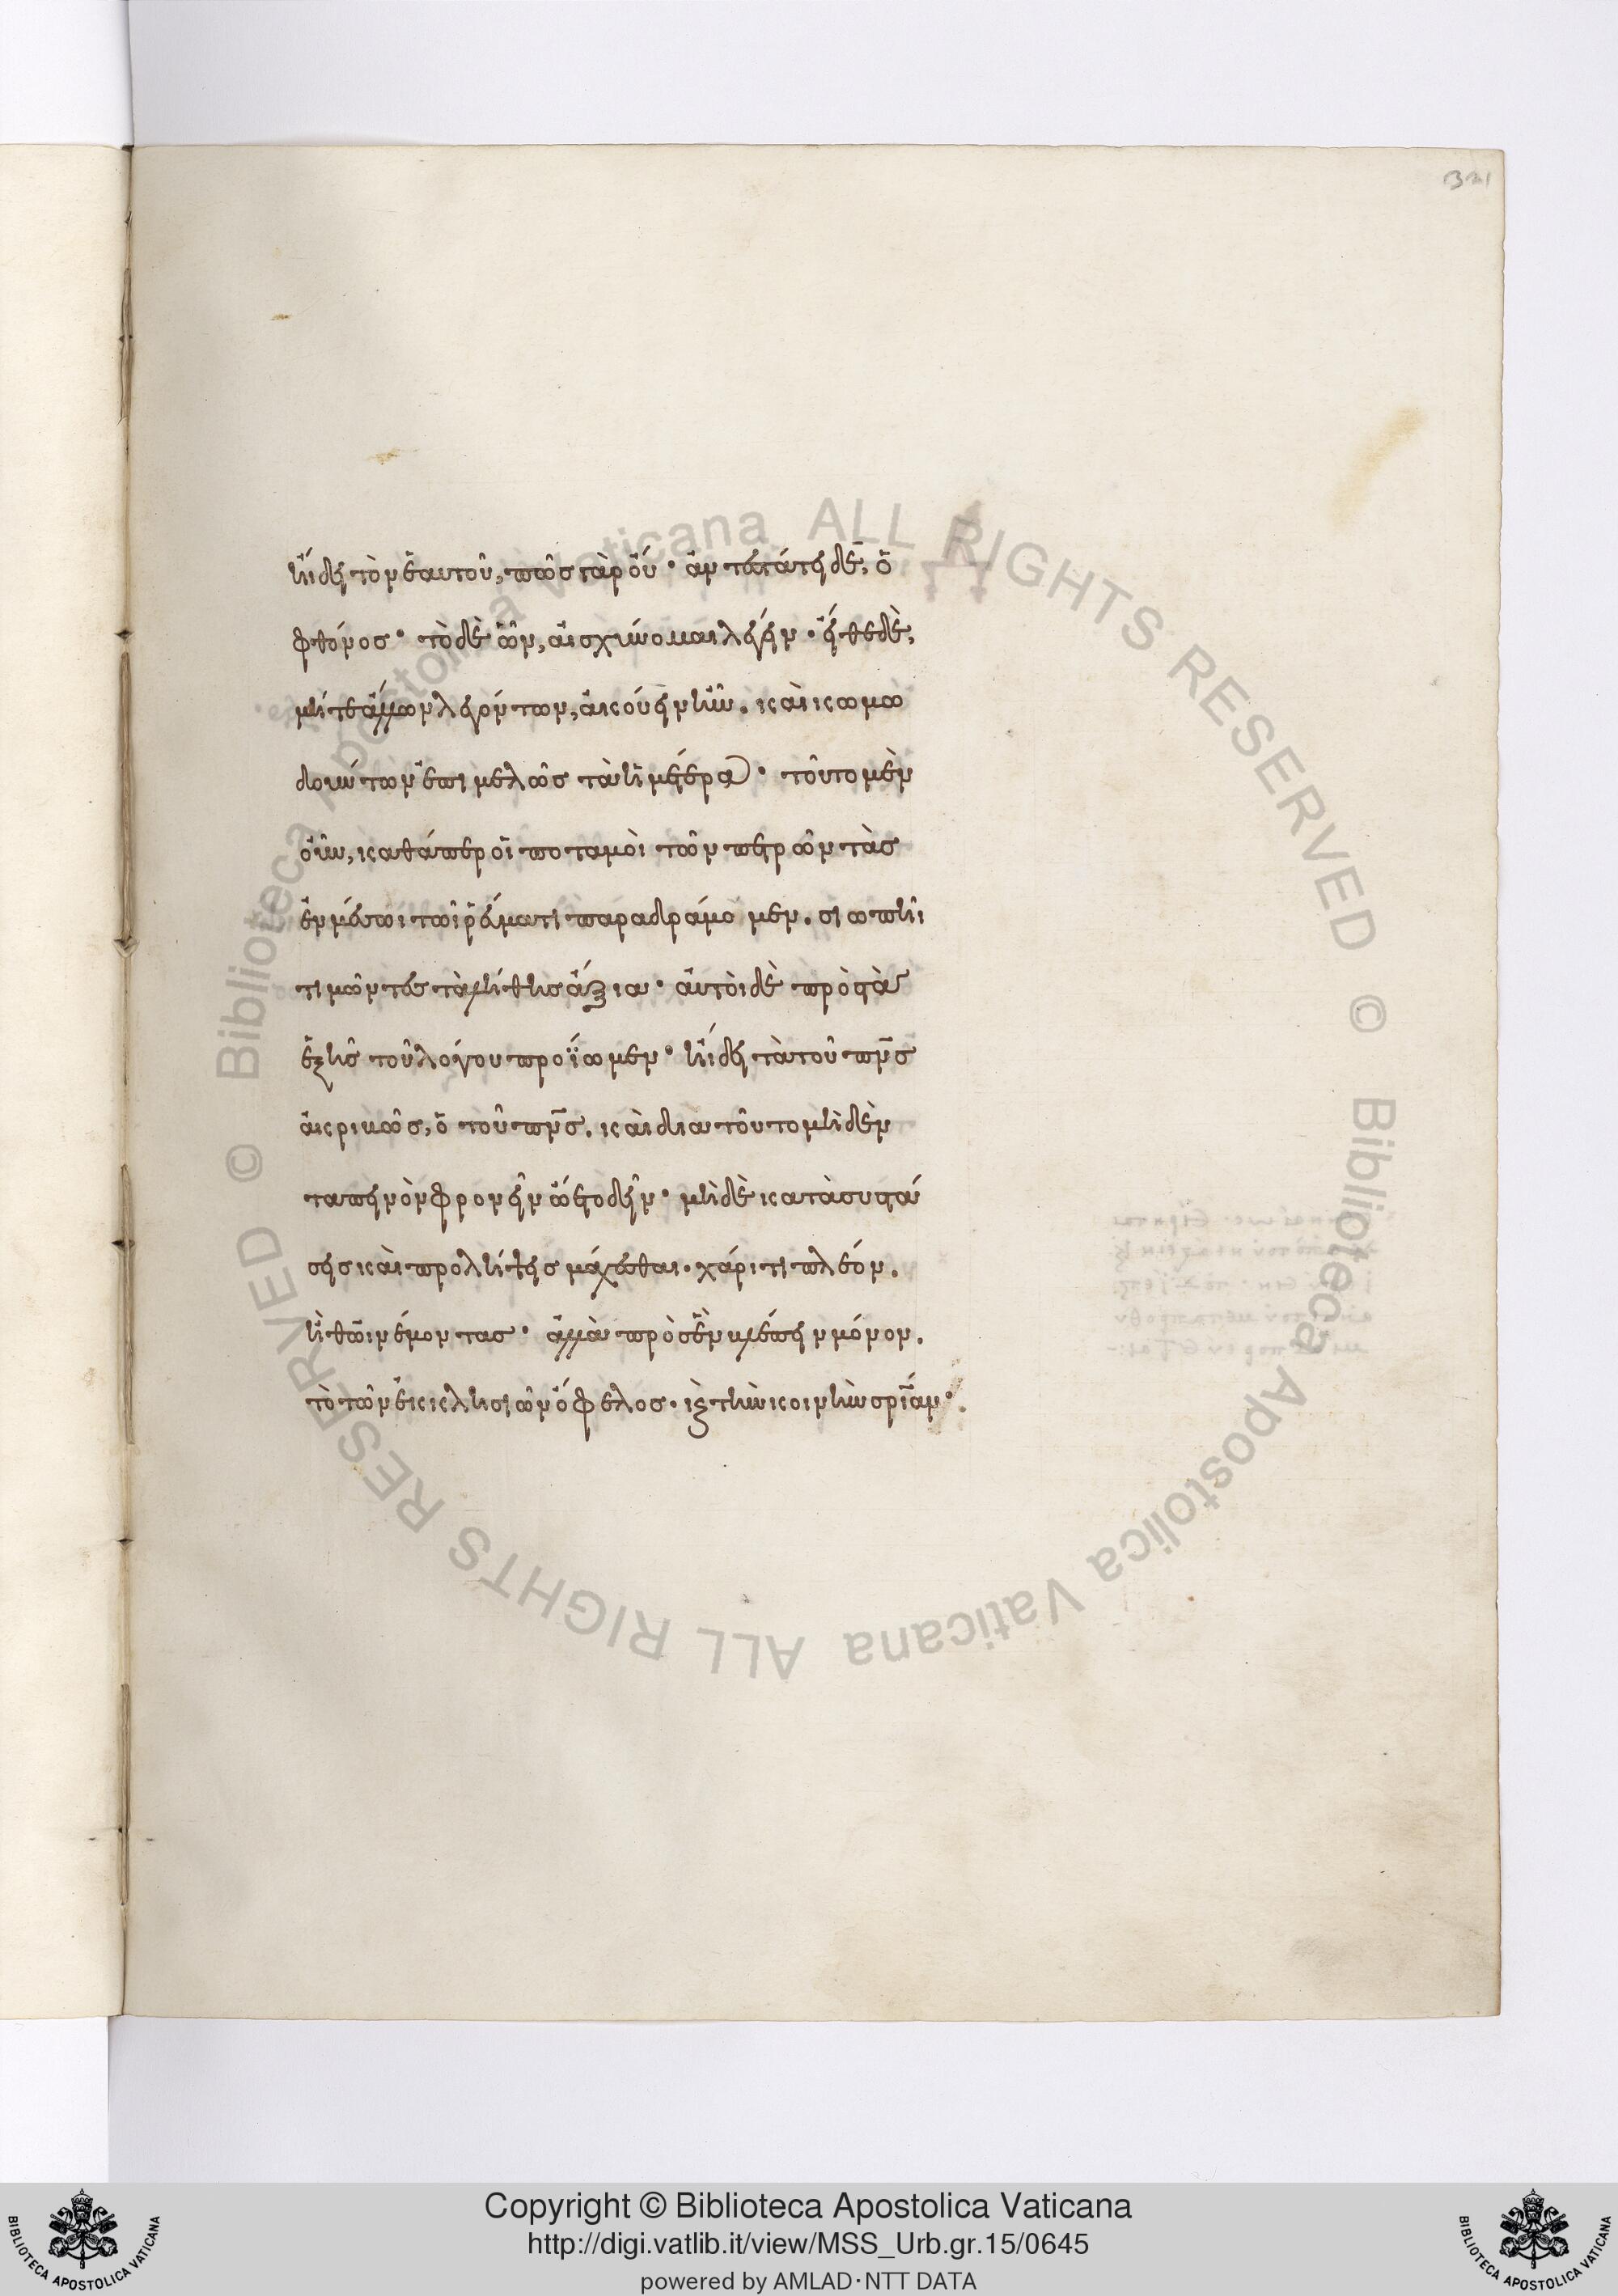 321
ἤιδει τὸν ἑαυτοῦ, πῶς γὰρ οὔ· ἀντεπάγει δὲ, ὁ
φθόνος· τὸ δὲ ὧν, αἰσχύνομαι λέγειν· εἴθε δὲ,
μήτε ἄλλων λεγόντων, ἀκούειν ἦν. καὶ κωμω
δούντων ἐπιμελῶς τὰ ἡμέτερα· τοῦτο μὲν
οὖν, καθάπερ οἱ ποταμοὶ τῶν πετρῶν τὰς
ἐν μέσωι τῶι ῥεύματι παραδράμομεν. σιωπῆι
τιμῶντες τὰ λήθης ἄξια· αὐτοὶ δὲ πρὸς τὰ
ἑξῆς τοῦ λόγου προΐωμεν· ἤιδει τὰ τοῦ πν̅ς
ἀκριβῶς, ὁ τοῦ πν̅ς. καὶ δια τοῦτο μηδὲν
ταπεινὸν φρονεῖν ὤιετο δεῖν· μηδὲ κατὰ συστά
σεις καὶ προλήψεις μάχεσθαι. χάριτι πλέον.
ἢ θω̅ι νέμοντας· ἀλλὰ πρὸς ἓν βλέπειν μόνον.
τὸ τῶν ἐκκλησιῶν ὄφελος. κ̀ τὴν κοινὴν σρι̅αν·
Copyright © Biblioteca Apostolica Vaticana
http://digi.vatlib.it/view/MSS_Urb.gr.15/0645
powered by AMLAD·NTT DATA
BIBLIOTECA APOSTOLICA VATICANA
BIBLIOTECA APOSTOLICA VATICANA
© Biblioteca Apostolica Vaticana ALL RIGHTS RESERVED © Biblioteca Apostolica Vaticana ALL RIGHTS RESERVED